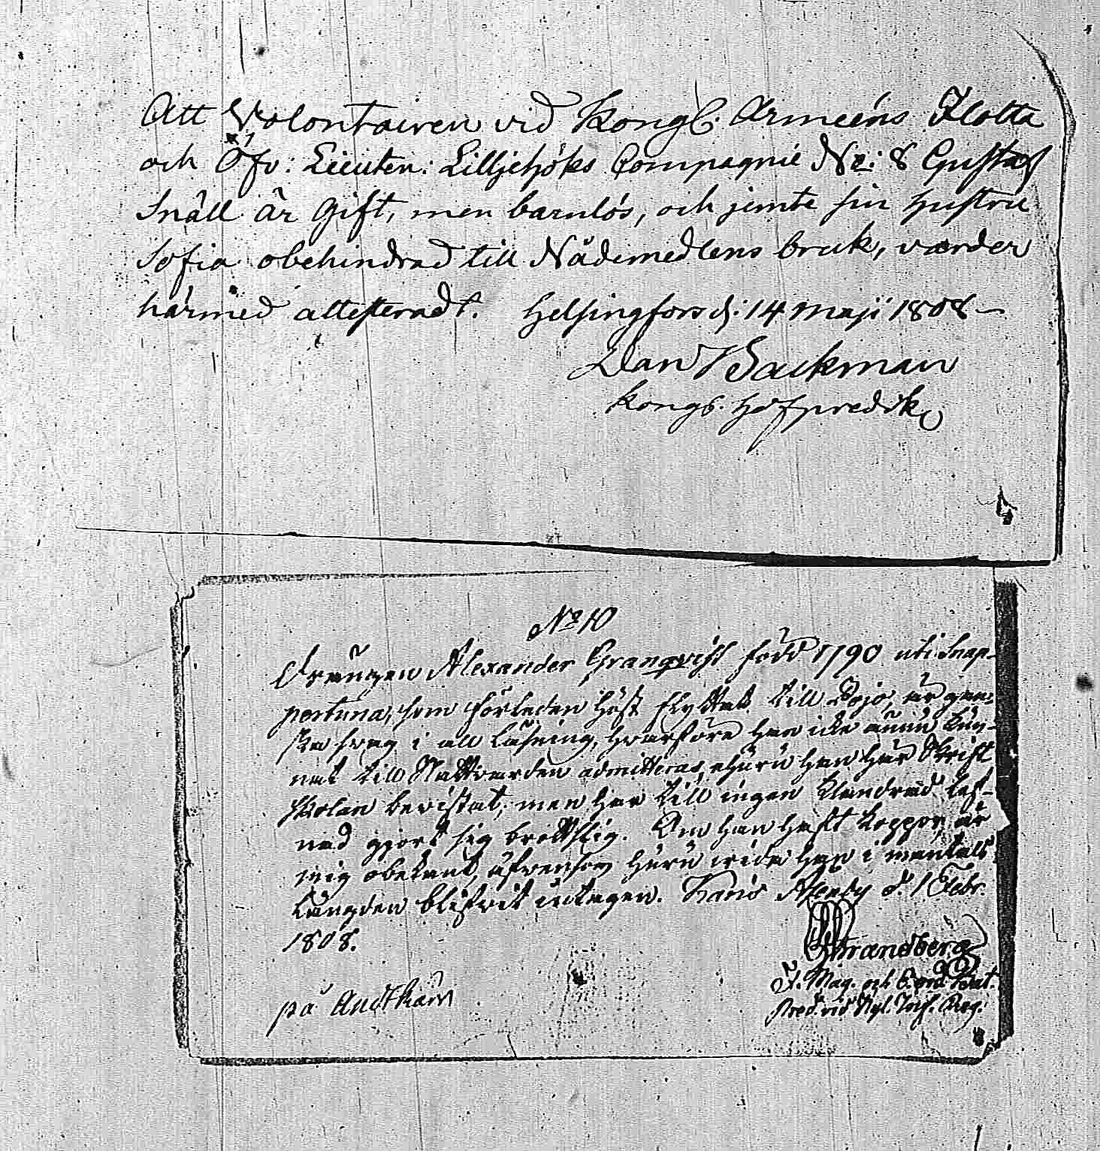 Att Volontairen vid Kongl: Arméens Flotta
och Öfv: Lieuten: Lilljehjöks Compagnie No: 8 Gustaf
Snäll är gift, men barnlös, och jemte sin hustru
Sofia obehindrad till Nådemedlens bruk, varder
härmed attesteradt. Helsingfors d: 14 Maji 1808
Dan Backman
Kongs. Hofpredik
No 10
Drängen Alexander Granqvist född 1790 uti Snap-
pertuna, som förleden höst flyttat till Pojo, är gan-
ska svag i all läsning, hvarföre han icke ännu kun-
nat till Nattvarden admitteras, ehuru han har Skrift
skolan bevistat; men har till ingen klandrad lef-
nad gjort sig brottslig. Om han haft koppor, är
mig obekant, äfvensom huruvida han i mantals
längden blifvit intagen. Karis d. 1 Febr.
1808.
Strandberg
F. Mag. och Bat.
Pred. vid Nyl. Inf. Reg.
på